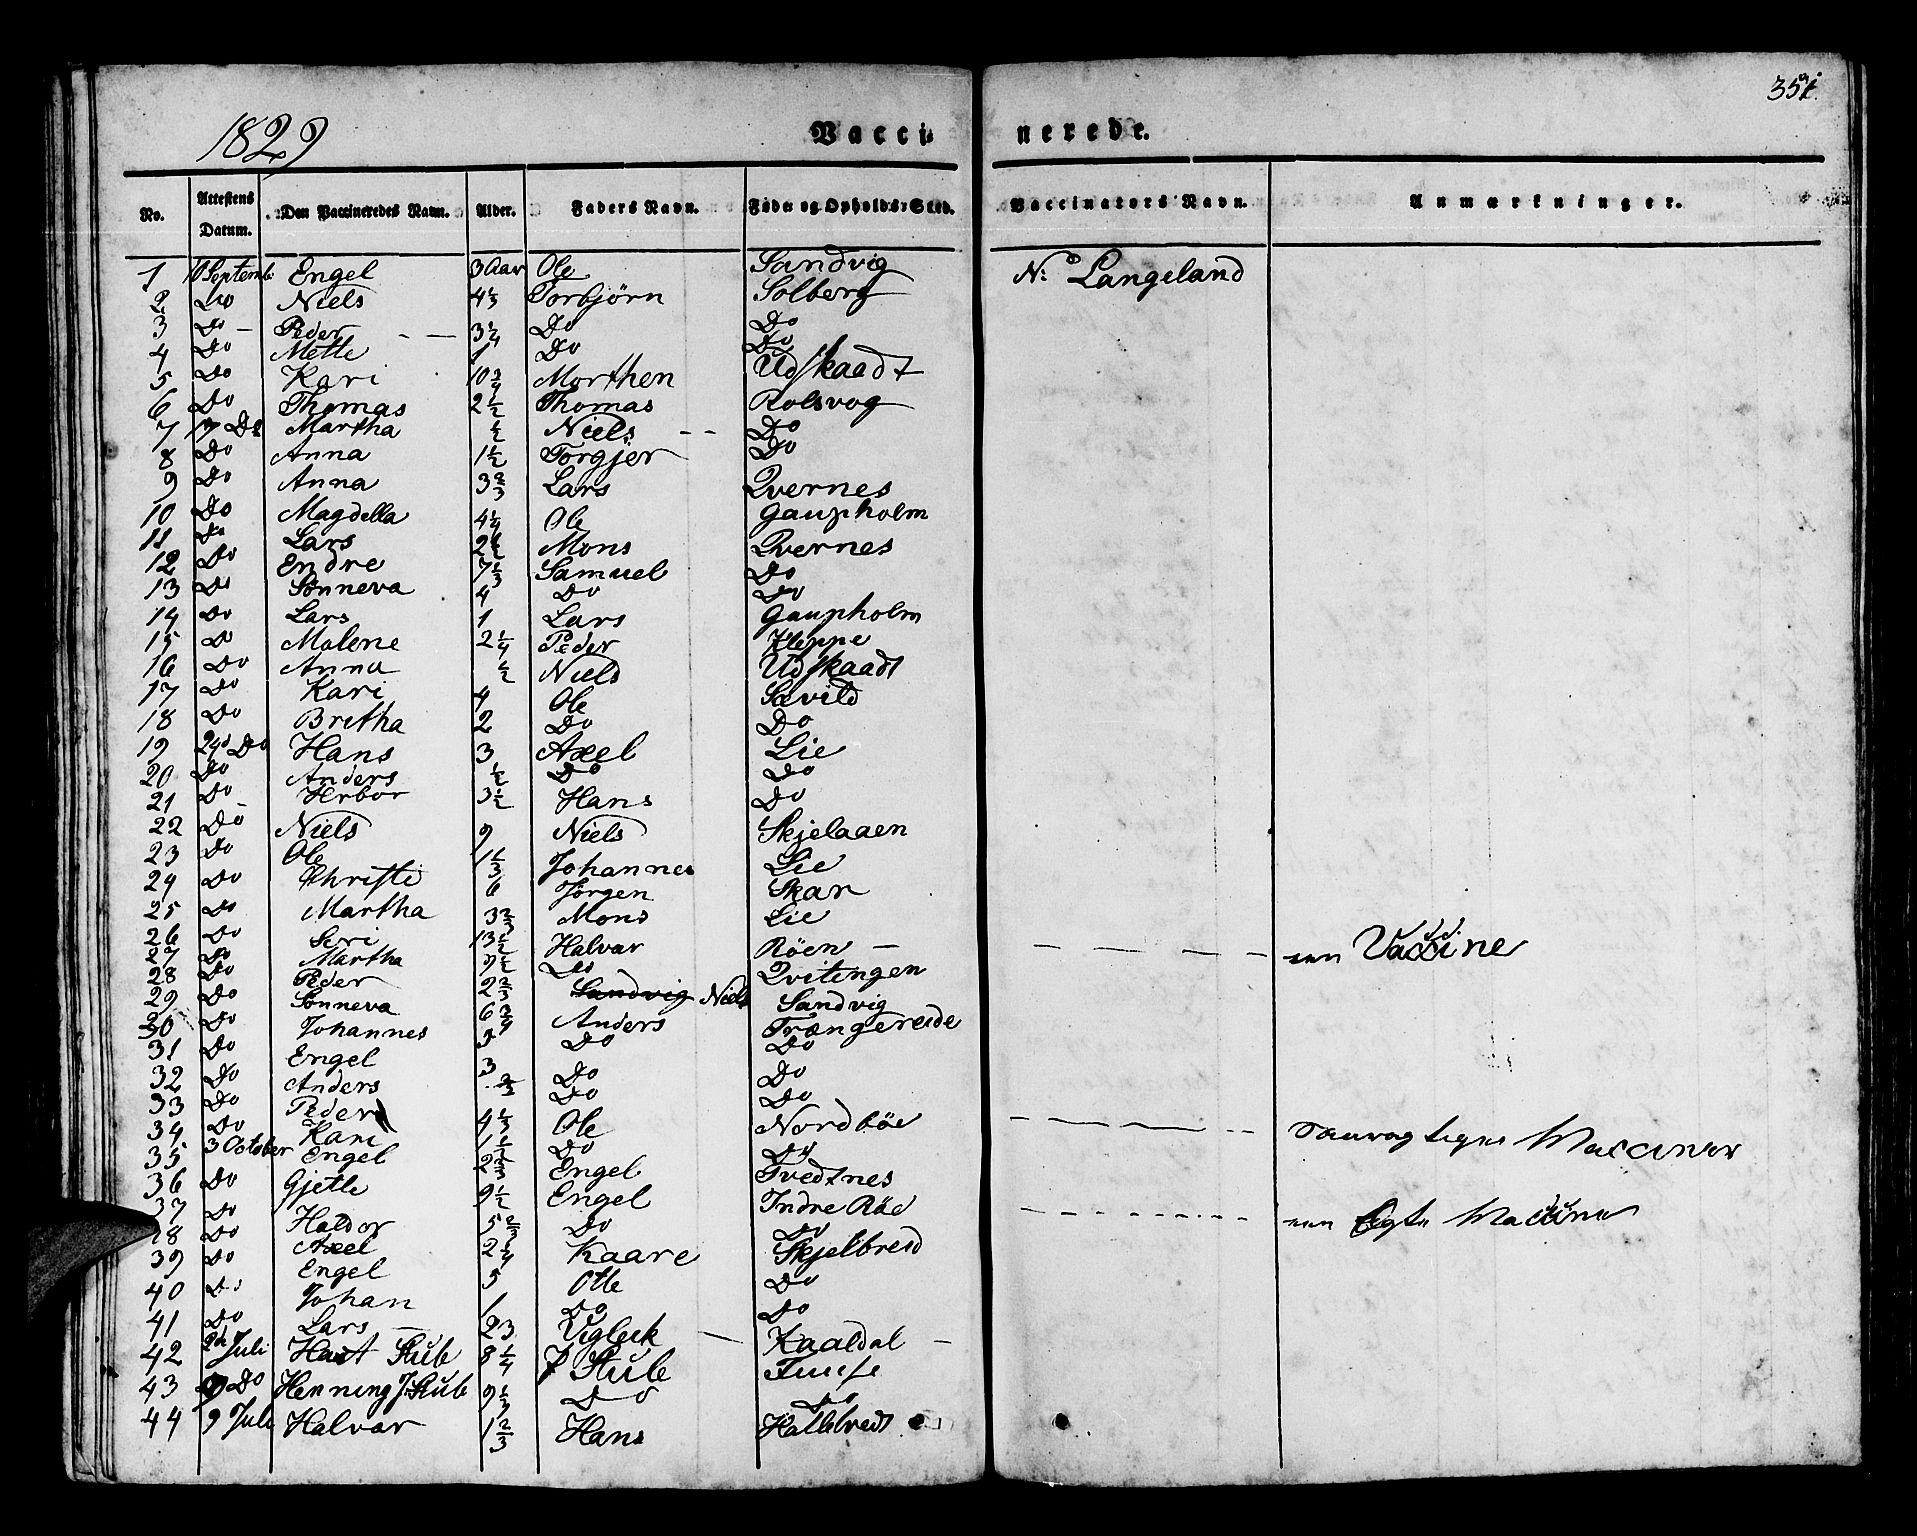 1829
Vacci- nerede.
No. Attestens Datum. Den Vaccineredes Navn. Alder. Faders Navn. Føde og Opholds-Sted. Vaccinators Navn. Anmærkninger.
1 10 Septemb Engel 3 Aar Ole Sandvig N: Langeland
2 Do Niels 4 1/3 Torbjörn Solberg
3 Do - Peder - - 3 1/4 Do Do
4 Do Mette 1 Do Do
5 Do Kari 10 3/4 Morthen Udskaadt
6 Do Thomas 2 1/2 Thomas Rolsvog
7 17 Do Martha 1/2 Niels - - Do
8 Do Anna 1 1/2 Torgjer Do
9 Do Anna 3 2/3 Lars Qvernes
10 Do Magdella 4 1/4 Ole Gaupholm
11 Do Lars 2 1/2 Mons Qvernes
12 Do Endre 7 1/3 Samuel Do
13 Do Sønneva 4 Do Do
14 Do Lars 1 Lars Gaupholm
15 Do Malene 2 1/4 Peder Kleppe
16 Do Anna 1/2 Niels Udskaadt
17 Do Kari 4 Ole Sævild
18 Do Bretha 2 Do Do
19 24d Do Hans 3 Axel Lie
20 Do Anders 1/2 Do Do
21 Do Herbor 3 1/2 Hans Do
22 Do Niels 9 Niels Skjelaaen
23 Do Ole 1 1/3 Johannes Lie
24 Do Christi 6 Jørgen Skar
25 Do Martha 3 2/3 Mons Lie
26 Do Seri 13 1/2 Halvar Röen - - - - - Vaccine
27 Do Martha 9 1/2 Do Qvitengen
28 Do Peder 2 2/3 Sandvig Niels Sandvig
29 Do Sønneva 6 3/4 Anders Trængereide
30 Do Johannes 5 Do Do
31 Do Engel 3 Do Do
32 Do Anders 2/3 Do Do
33 Do Peder 4 1/3 Ole Nordböe
34 Do Kari 1 1/2 Do Do
35 3 October Engel 2 2/3 Engel Tvedtnes
36 Do Gjetle 9 1/2 Engel Indre Röe
37 Do Haldor 5 2/3 Do Do
38 Do Axel 2 1/4 Kaare Skjelbreid
39 Do Engel 5 Otte Do
40 Do Johan 1 Do Do
41 Do Lars - 23 Vigleik - Kaaldal -
42 2de Juli Stub 8 1/4 J Stub Fuuse
43 Do Henning J: Stub 9 1/3 Do Do
44 9 Juli Halvar 1 2/3 Hans